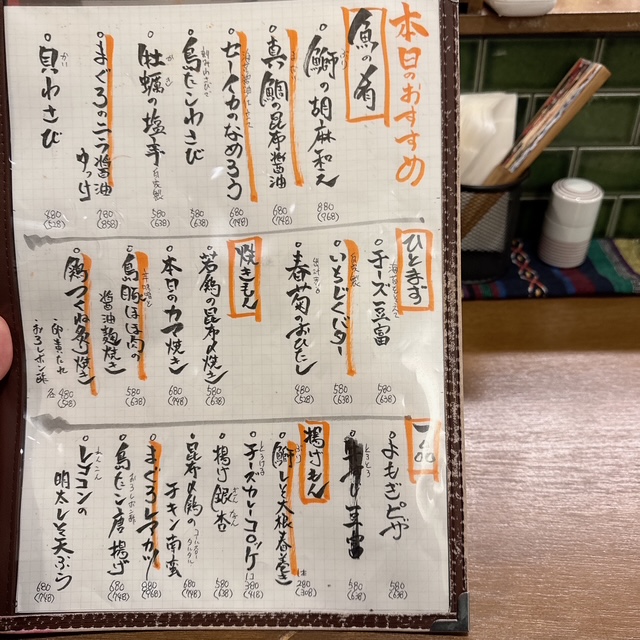 本日のおすすめ
魚の肴
鰤の胡麻和え
880
(968)
真鯛の昆布醤油
680
(748)
セーイカのなめろう
680
(748)
鳥たたわさび
580
(638)
牡蠣の塩辛
自家製
580
(638)
まぐろのニラ醤油
ゆっけ
780
(858)
貝わさび
480
(528)
ひとます
チーズ豆富
580
(638)
いちじくバター
自家製
580
(638)
春菊のおひたし
480
(528)
焼きもん
若鶏の昆布〆焼き
580
(638)
本日のカマ焼き
680
(748)
醤油麹焼き
580
(638)
鶏つくね炙り焼き
・卵黄たれ
・おろしポン酢
各480
(528)
一品
よもぎピザ
580
(638)
豆富
580
(638)
揚げもん
鰤しそ大根春巻き
280
(308)
チーズカレーコロッケ
380
(418)
揚げ銀杏
ぎんなん
580
(638)
昆布〆鶏の
チキン南蛮
680
(748)
まぐろレアカツ
880
(968)
鳥タン唐揚げ
おろしポン酢
680
(748)
レンコンの
明太しそ天ぷら
680
(748)